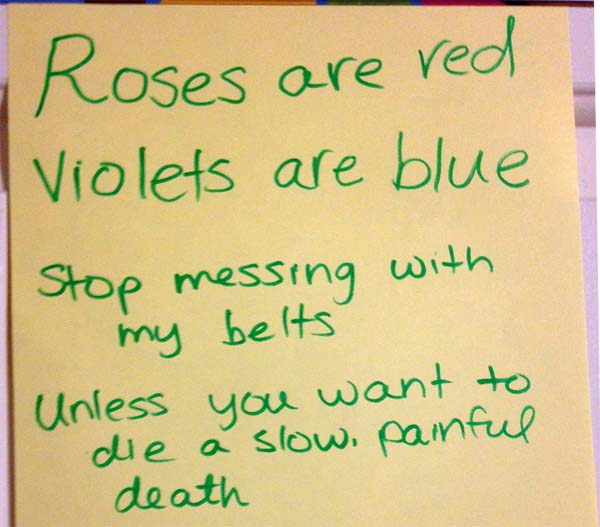 Roses are red
Violets are blue
Stop messing with
my belts
Unless you want to
die a slow, painful
death